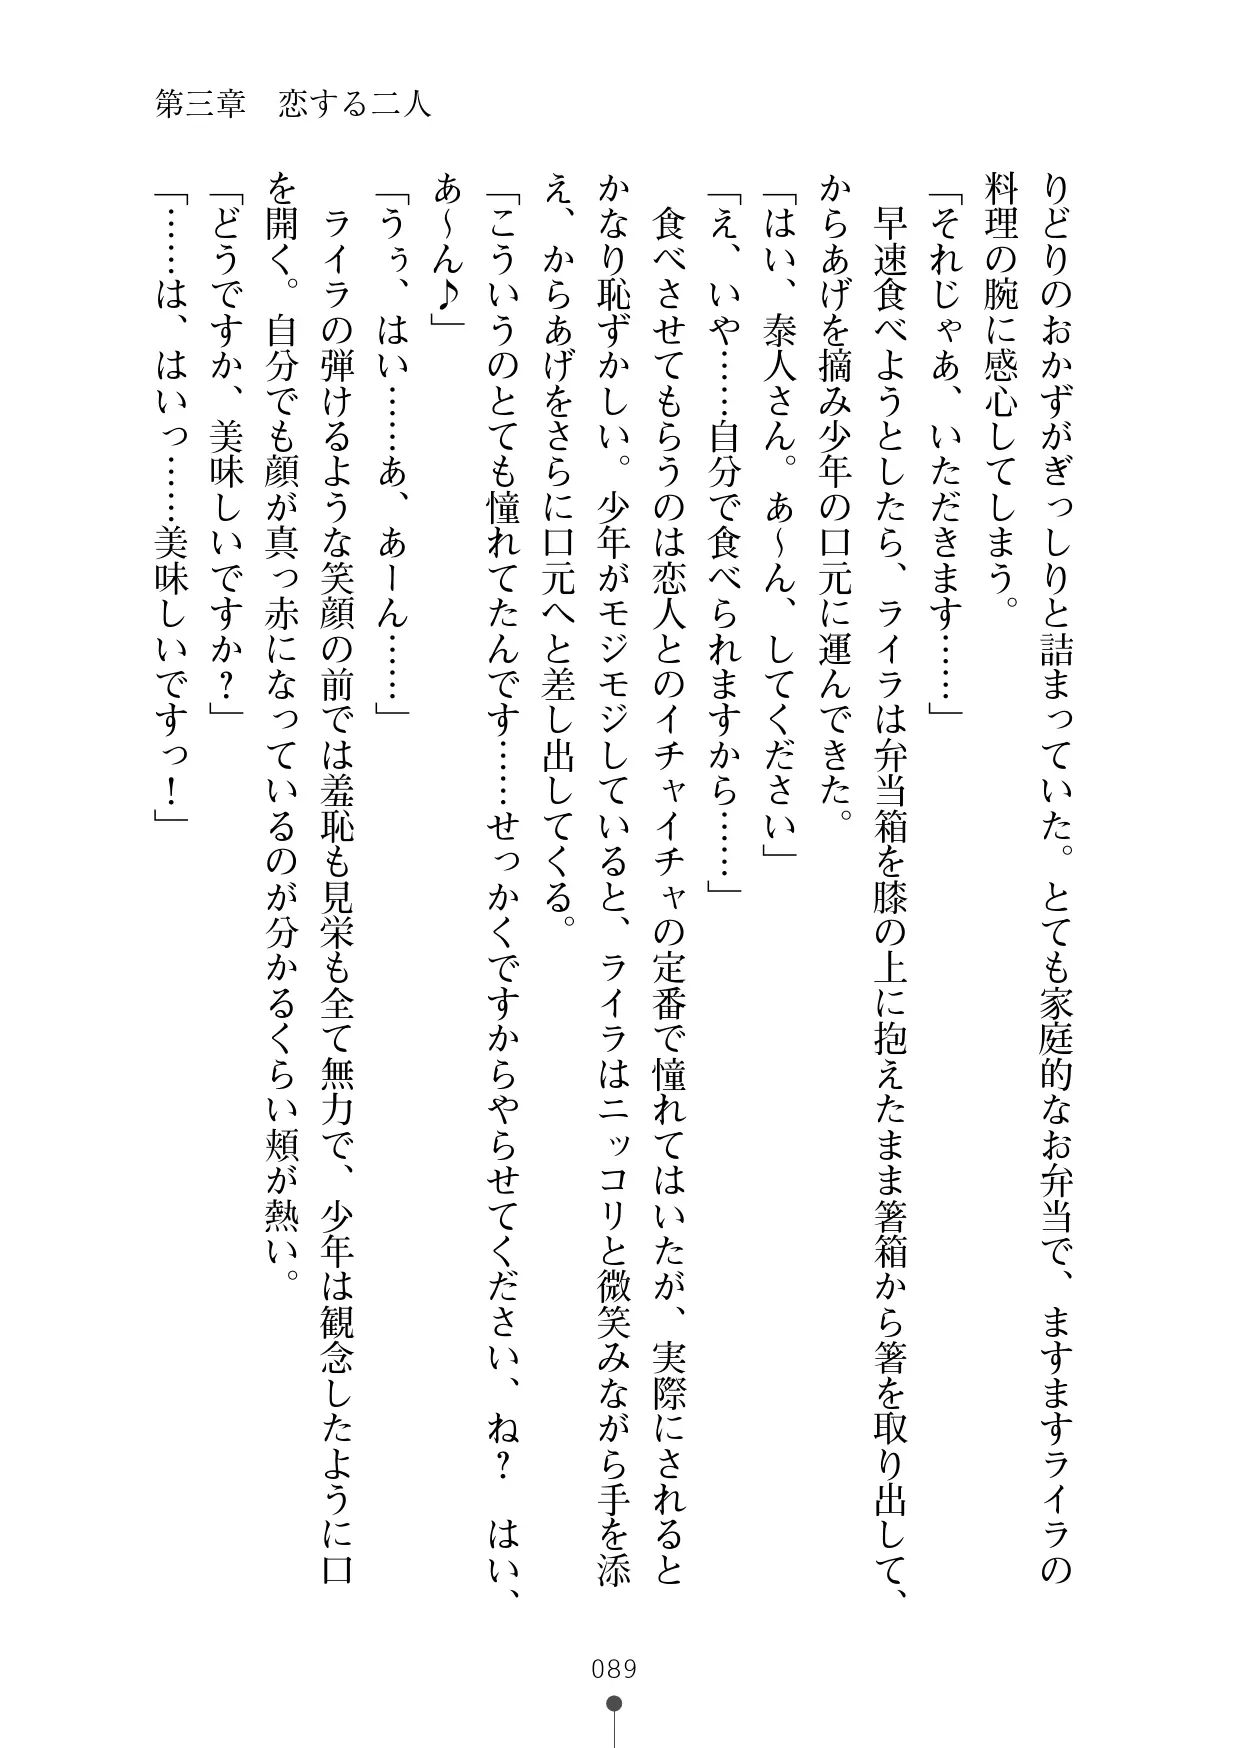 第三章　恋する二人
りどりのおかずがぎっしりと詰まっていた。とても家庭的なお弁当で、ますますライラの
料理の腕に感心してしまう。
「それじゃあ、いただきます……」
　早速食べようとしたら、ライラは弁当箱を膝の上に抱えたまま箸箱から箸を取り出して、
からあげを摘み少年の口元に運んできた。
「はい、泰人さん。あ～ん、してください」
「え、いや……自分で食べられますから……」
　食べさせてもらうのは恋人とのイチャイチャの定番で憧れてはいたが、実際にされると
かなり恥ずかしい。少年がモジモジしていると、ライラはニッコリと微笑みながら手を添
え、からあげをさらに口元へと差し出してくる。
「こういうのとても憧れてたんです……せっかくですからやらせてください、ね？　はい、
あ～ん♪」
「うぅ、はい……あ、あーん……」
　ライラの弾けるような笑顔の前では羞恥も見栄も全て無力で、少年は観念したように口
を開く。自分でも顔が真っ赤になっているのが分かるくらい頬が熱い。
「どうですか、美味しいですか？」
「……は、はいっ……美味しいですっ！」
089